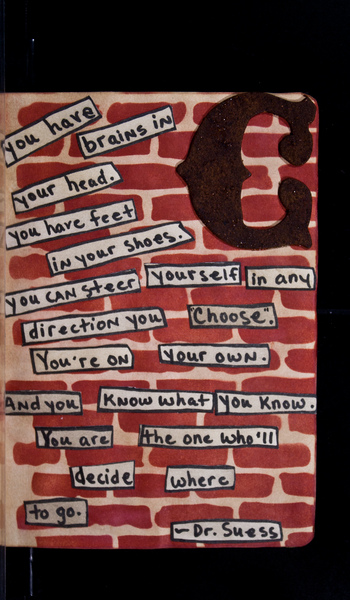 C
you have
brains in
your head.
you have feet
in your shoes.
you can steer yourself in any
direction you "Choose".
You're on your own.
And you know what you know.
You are the one who'll
decide where
to go.
~Dr. Suess